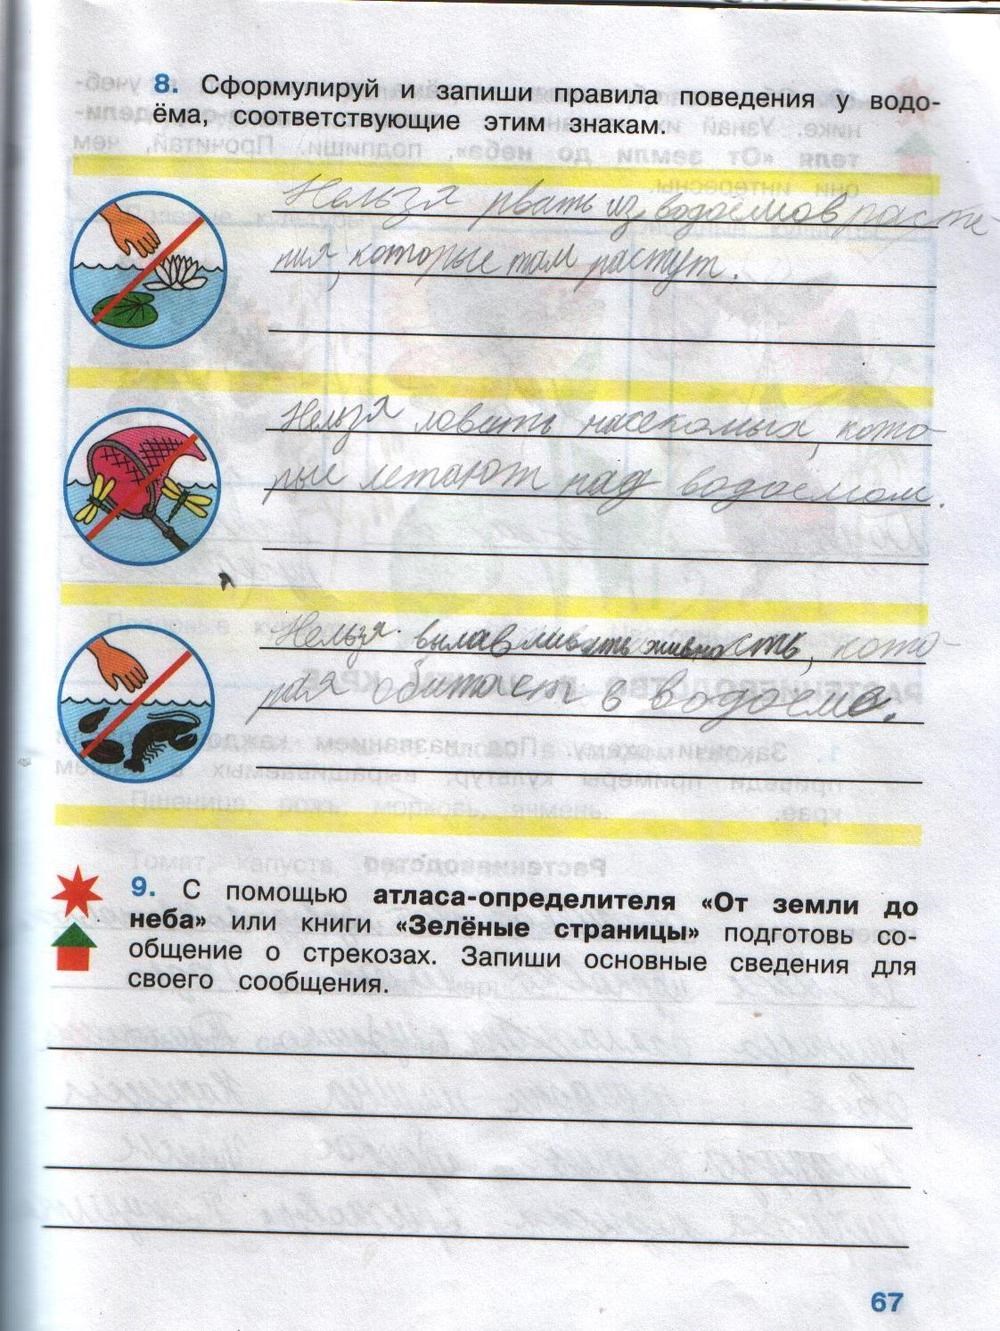 8. Сформулируй и запиши правила поведения у водо-
ёма, соответствующие этим знакам.
Нельзя рвать из водоёмов расте-
ния, которые там растут.
Нельзя ловить насекомых, кото-
рые летают над водоёмом.
Нельзя вылавливать живность, кото-
рая обитает в водоёме.
9. С помощью атласа-определителя «От земли до
неба» или книги «Зелёные страницы» подготовь со-
общение о стрекозах. Запиши основные сведения для
своего сообщения.
67